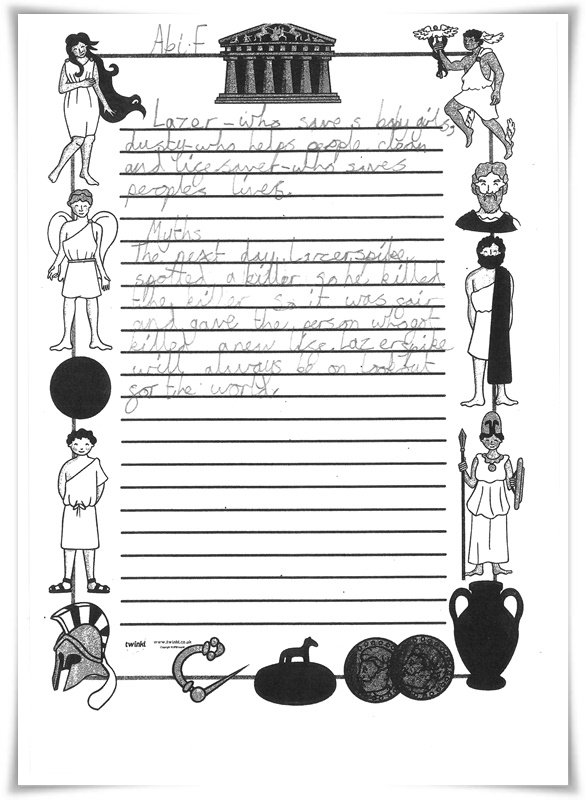 Abi.F
Lazer-who saves baby girls
dusty-who helps people clean
and lifesaver-who saves
peropls lives.
Myths
The next day Lazerspike
spotted a killer so he killed
the killer so it was fair
and gave the person who got
killed a new life. Lazerspike
will always be on lookout
for the world.
twinkl www.twinkl.co.uk